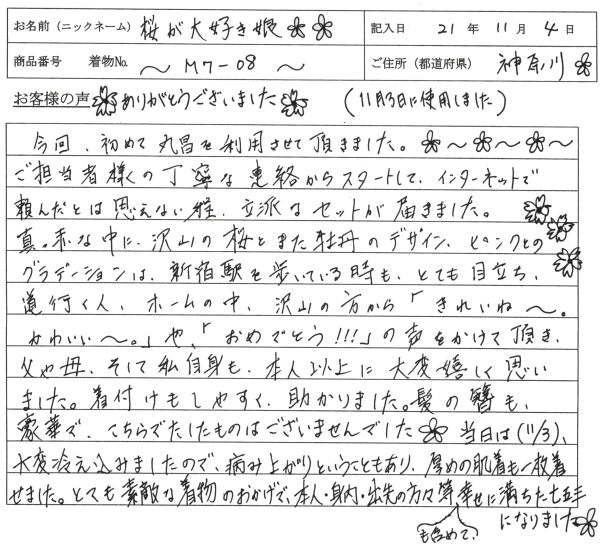 お名前(ニックネーム) 桜が大好き娘 記入日 21年 11月 4日
商品番号 着物No. ～ M7-08 ～ ご住所(都道府県) 神奈川
お客様の声 ありがとうございました (11月3日に使用しました)
今回、初めて丸昌を利用させて頂きました。～～～
ご担当者様の丁寧な連絡からスタートして、インターネットで
頼んだとは思えない程、立派なセットが届きました。
真っ赤な中に、沢山の桜とまた牡丹のデザイン、ピンクとの
グラデーションは、新宿駅を歩いている時も、とても目立ち、
道行く人、ホームの中、沢山の方から「きれいね～。
かわいい～。」や、「おめでとう!!!」の声をかけて頂き、
父や母、そして私自身も、本人以上に大変嬉しく思い
ました。着付けもしやすく、助かりました。髪の簪も、
豪華で、こちらでたしたものはございませんでした 当日は(11/3)、
大変冷え込みましたので、病み上がりということもあり、厚めの肌着も一枚着
せました。とても素敵な着物のおかげで、本人・身内・出先の方々等、幸せに満ちた七五三
も含めて、 になりました